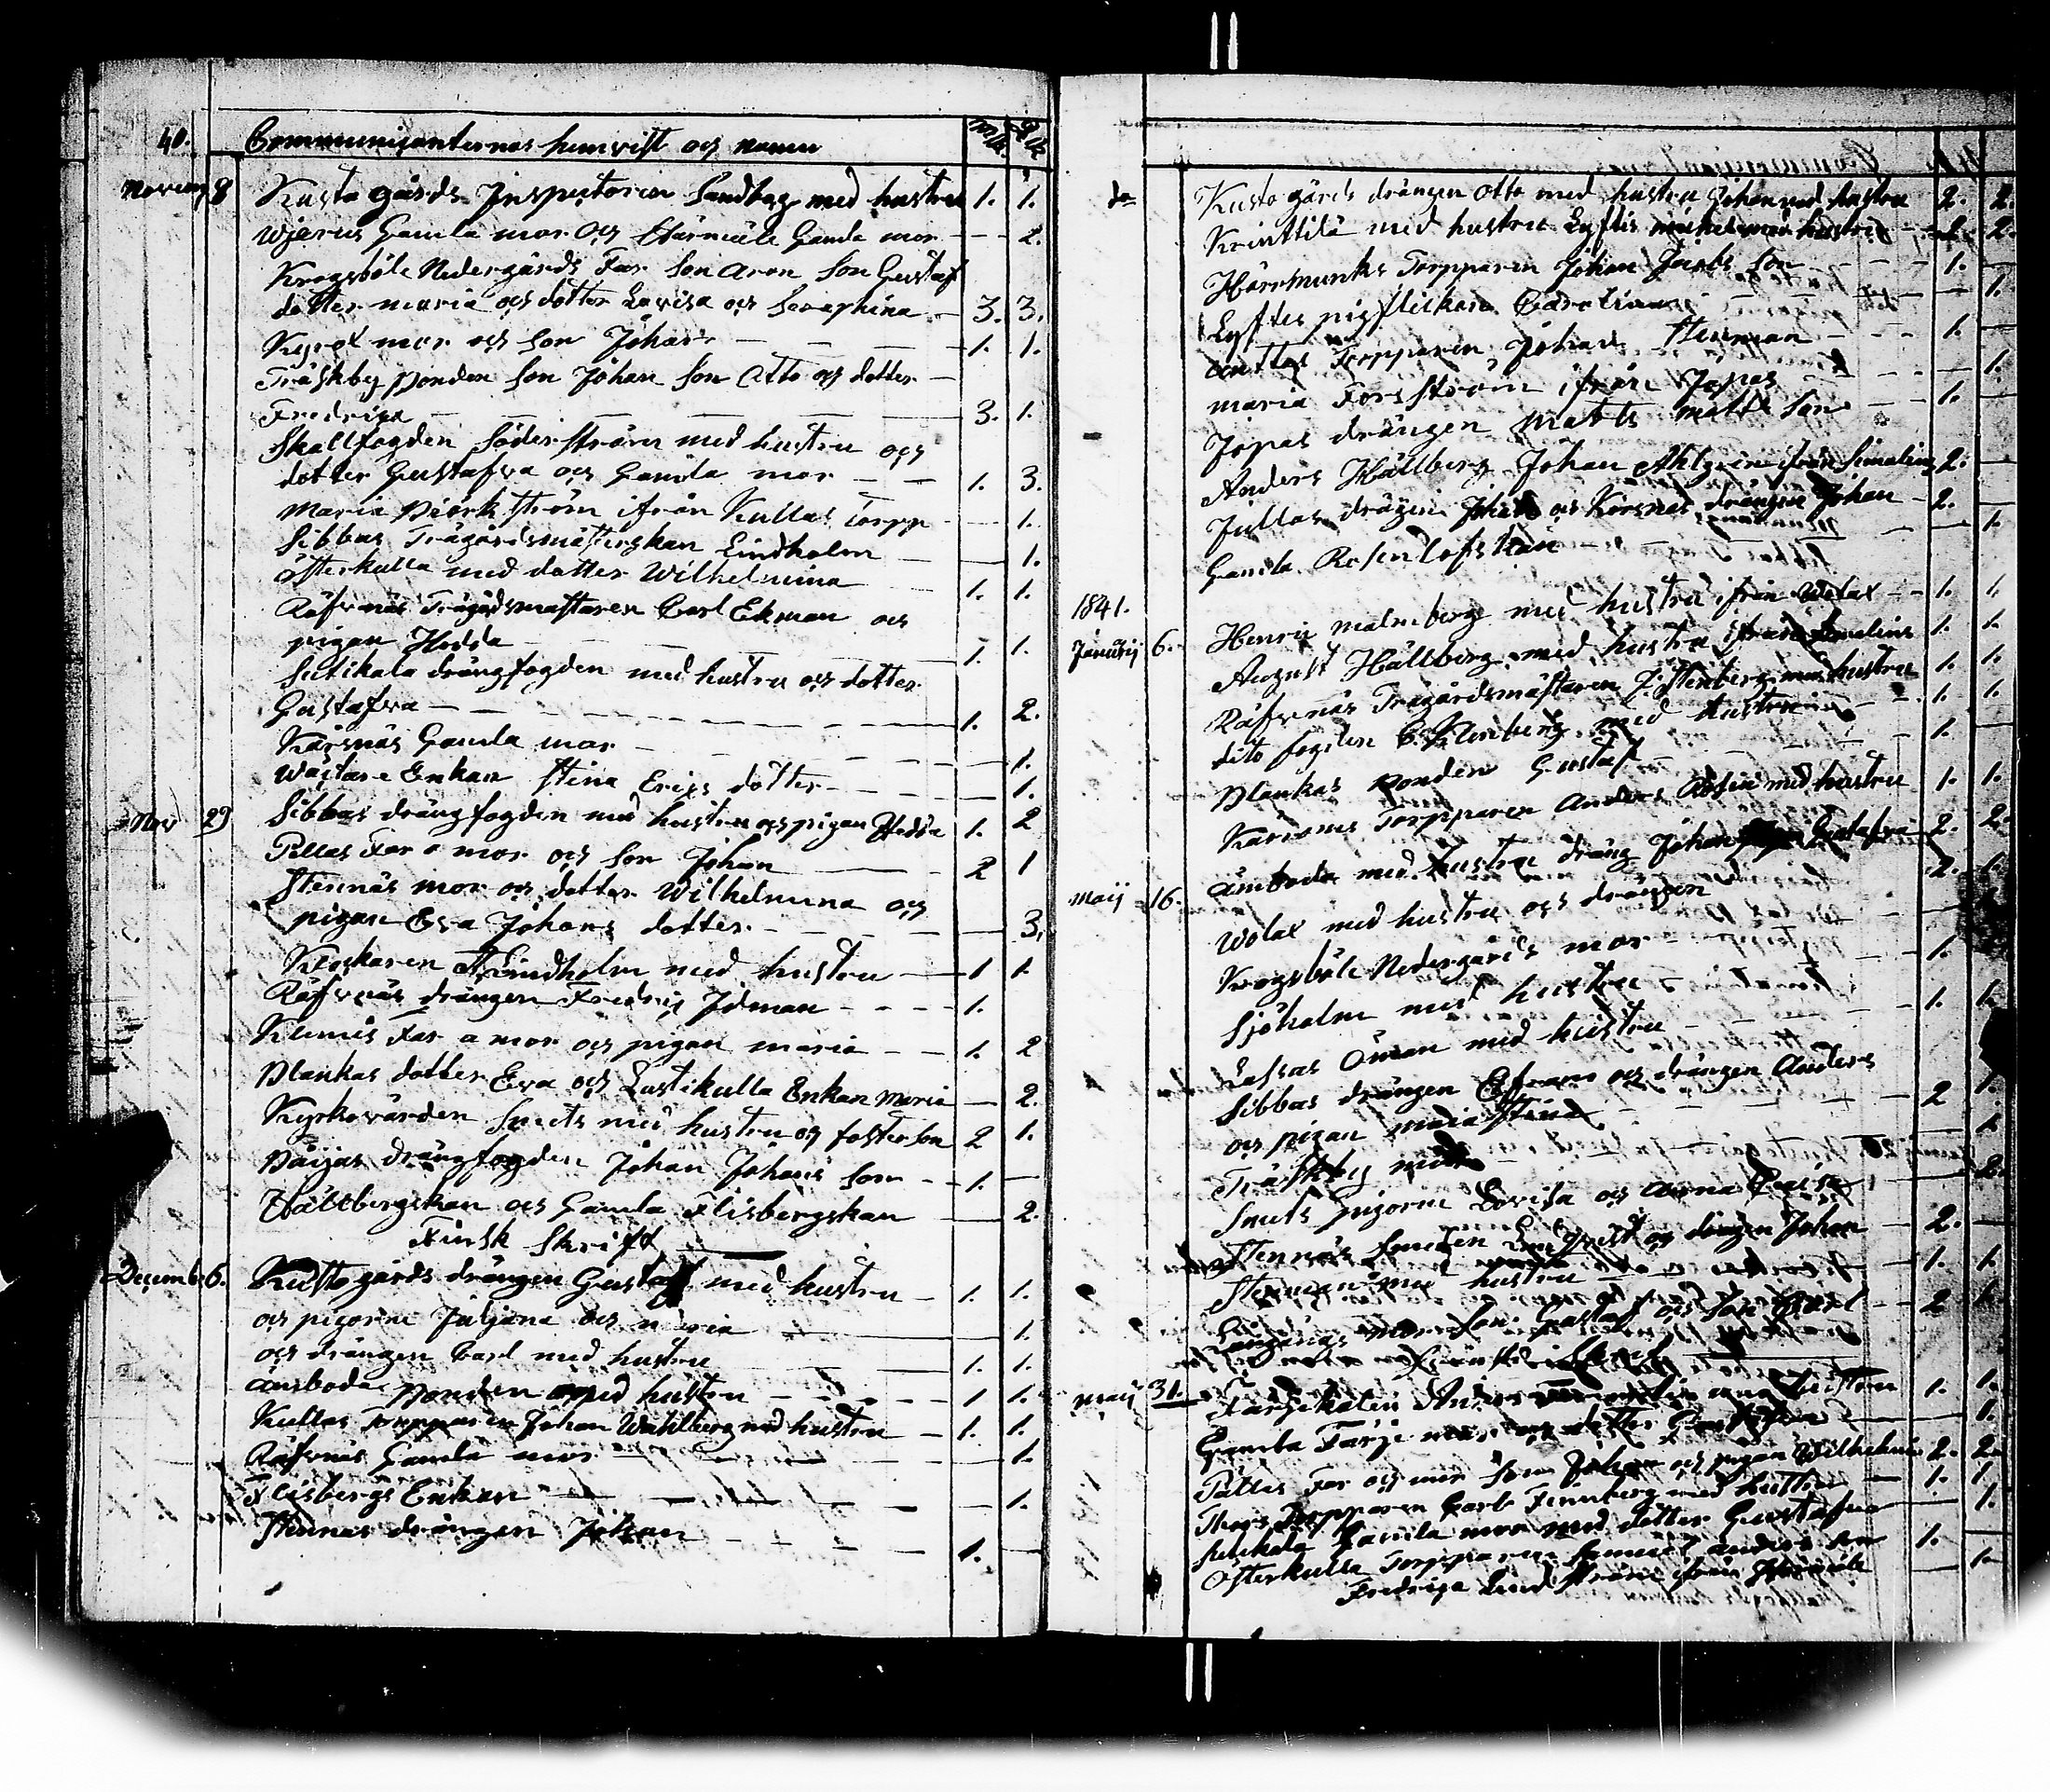 40. Communicanternas hemvist och namn m.k. q.k.
Novemb 8 Kusto gårds Inspectoren Sandbag med hustru 1. 1.
Wjerus Gamla mor och Starmåle Gamla mor — 2.
Krogsböle Nedergårds Far Son Aron Son Gustaf
dotter maria och dotter Lovisa och Seraphina 3. 3.
mor och son Johan 1. 1.
Träskby Bonden Son Johan Son Otto och dotter
Fredrica 3. 1.
Skallfogden Söderström med hustru och
dotter Gustafva och Gamla mor 1. 3.
Maria Björkström ifrån Kullas Torpp 1.
Sibbas Trägårdsmästerskan Lindholm 1.
Österkulla med dotter Wilhelmina 1. 1.
Räfsnäs Trägårdsmästaren Carl Ekman och
pigan Hedda 1. 1.
Sutikala drängfogden med hustru och dotter
Gustafva 1. 2.
Kärsnäs Gamla mor 1.
Enkan Stina Erics dotter 1.
Nov 29 Sibbas drängfogden med hustru och pigan Hedda 1. 2
Pellas Far o mor och son Johan 2 1
Stennäs mor och dotter Wilhelmina och
pigan Eva Johans dotter 3.
Klockaren Lindholm med hustru 1 1
Räfsnäs drängen Fredric Idman 1.
Klemis Far o mor och pigan maria 1. 2
Plankas dotter Eva och Lustikulla Enkan Maria — 2.
Kyrkovärden Smets med hustru och foster son 2 1.
drängfogden Johan Johans son 1.
Hällbergskan och Gamla Flisbergskan 2.
Finsk Skrift
Decemb 6. Kusto gårds drängen Gustaf med hustru 1. 1.
och pigorne Juljana och maria 1.
och drängen Carl med hustru 1. 1.
amboda Bonden med hustru 1 1.
Kullas Torpparen Johan Wahlberg med hustru 1. 1.
Räfsnäs Gamla mor 1.
Flisbergs Enkan 1.
Stennäs drängen Johan 1.
do Kusto gårds drängen Otto med hustru Johan med hustru 2. 2.
Krinttilä med hustru Lyftis mickel med hustru 2. 2.
Torpparen Johan Jacobs son 1.
Lyftes pigflickan Carolina 1.
anttas Torpparen Johan Stenman 1.
maria Forsström ifrån Jopas 1.
Jopas drängen matts matts son 1.
Anders Hällberg Johan Ahlgren ifrån Simalius 2.
Jullas drängen Johan och Kärsnäs drängen Johan 2.
Gamla Rosenlöfskan 1.
1841.
Januarij 6. Henric malmberg med hustru ifrån Wolax 1. 1.
August Hällberg med hustru ifrån Simalius 1. 1.
Räfsnäs Trägårdsmästaren Stenberg med hustru 1. 1.
dito fogden med hustru 1. 1.
Plankas Bonden Gustaf 1.
Torpparen Anders med hustru 1. 1.
amboda med hustru dräng Johan Gustafva 2. 2.
Maij 16. Wolax med hustru och drängen 2. 1.
Krogsböle Nedergårds mor
Sjöholm med hustru 1.
Lassas Öman med hustru 1. 1.
Sibbas drängen Efraim och drängen Anders
och pigan maia Stina 2 1.
Träskby mor 1
Smets pigorne Lovisa och Anna 2.
Stennäs Smeden Lindqvist och drängen Johan 2.
Stenman med hustru 1. 1.
mor son Gustaf och son Carl 2 1.
Maij 31. Färjekarlen Anders med hustru 1. 1.
Gamla Färje mor och dotter 1.
Pellas Far och mor Son Johan och pigan Wilhelmi 2. 2.
Torpparen Carl Finnberg med hustru 1. 1.
Gamla mor med dotter Gustafva 1.
Österkulla Torpparen Anders son 1.
Fredrica Lindström ifrån 1.